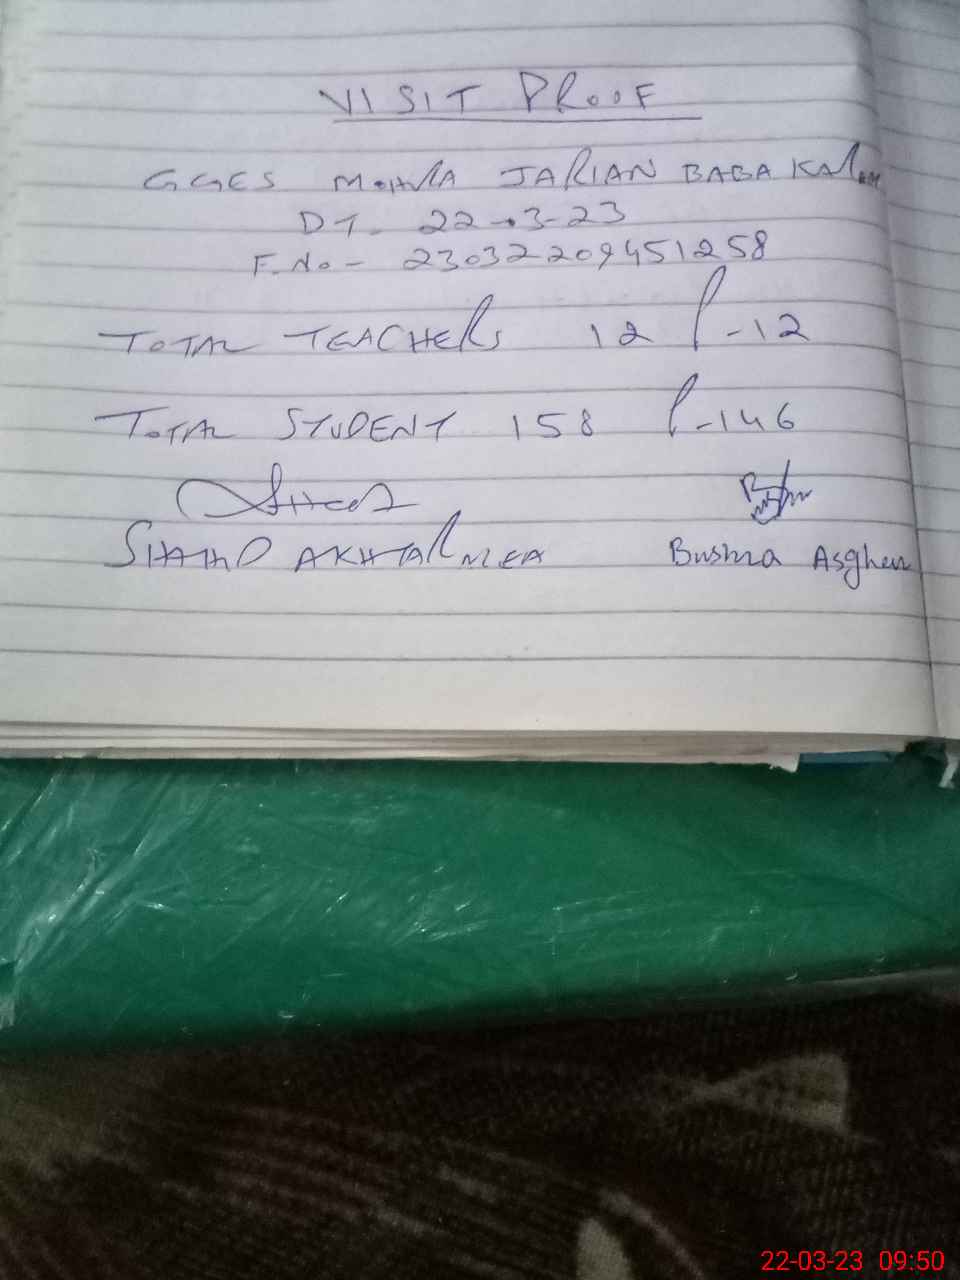 VISIT PROOF
GGES MOHRA JARIAN BABA
DT. 22-3-23
F.No- 23032209451258
TOTAL TEACHERS 12 P-12
TOTAL STUDENT 158 P-146
SHAHID AKHTAR MEA Bushra Asghar
22-03-23 09:50